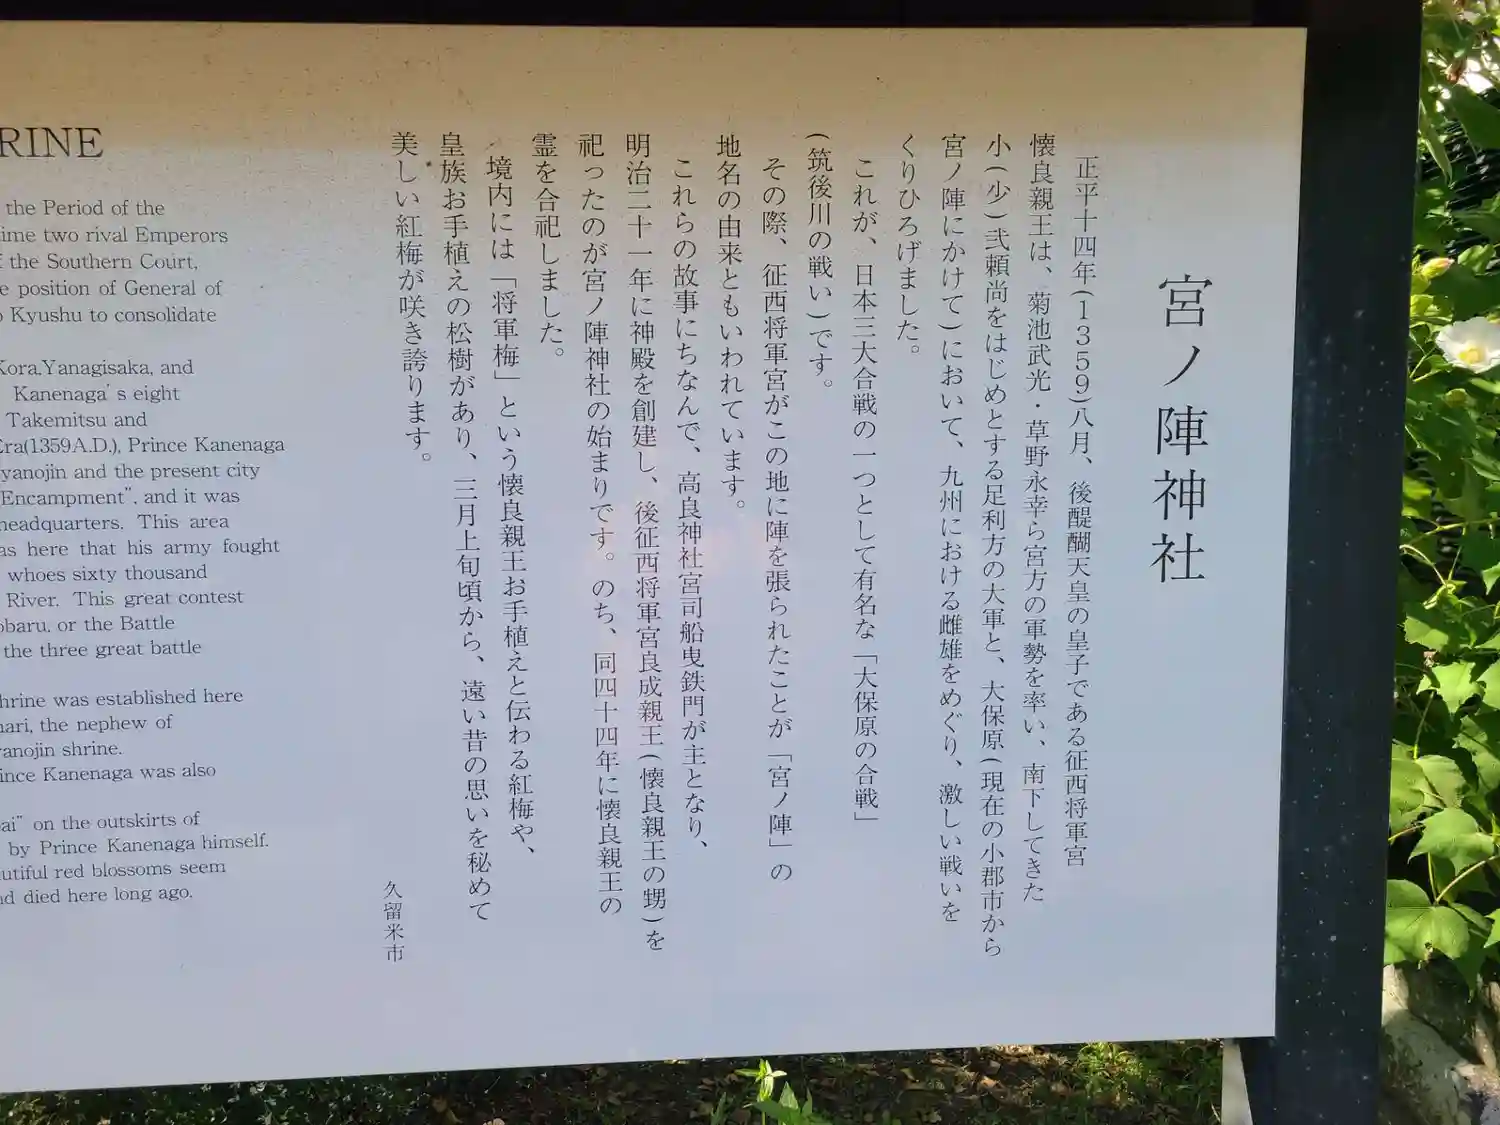 宮ノ陣神社
正平十四年(1359)八月、後醍醐天皇の皇子である征西将軍宮
懐良親王は、菊池武光・草野永幸ら宮方の軍勢を率い、南下してきた
小(少)弐頼尚をはじめとする足利方の大軍と、大保原(現在の小郡市から
宮ノ陣にかけて)において、九州における雌雄をめぐり、激しい戦いを
くりひろげました。
これが、日本三大合戦の一つとして有名な「大保原の合戦」
(筑後川の戦い)です。
その際、征西将軍宮がこの地に陣を張られたことが「宮ノ陣」の
地名の由来ともいわれています。
これらの故事にちなんで、高良神社宮司船曳鉄門が主となり、
明治二十一年に神殿を創建し、後征西将軍宮良成親王(懐良親王の甥)を
祀ったのが宮ノ陣神社の始まりです。のち、同四十四年に懐良親王の
霊を合祀しました。
境内には「将軍梅」という懐良親王お手植えと伝わる紅梅や、
皇族お手植えの松樹があり、三月上旬頃から、遠い昔の思いを秘めて
美しい紅梅が咲き誇ります。
久留米市
RINE
the Period of the
ime two rival Emperors
f the Southern Court,
e position of General of
o Kyushu to consolidate
Kora.Yanagisaka, and
Kanenaga's eight
Takemitsu and
Era(1359A.D.), Prince Kanenaga
yanojin and the present city
Encampment", and it was
headquarters. This area
as here that his army fought
whoes sixty thousand
River. This great contest
obaru. or the Battle
the three great battle
hrine was established here
nari, the nephew of
yanojin shrine.
ince Kanenaga was also
ai" on the outskirts of
by Prince Kanenaga himself.
utiful red blossoms seem
nd died here long ago.